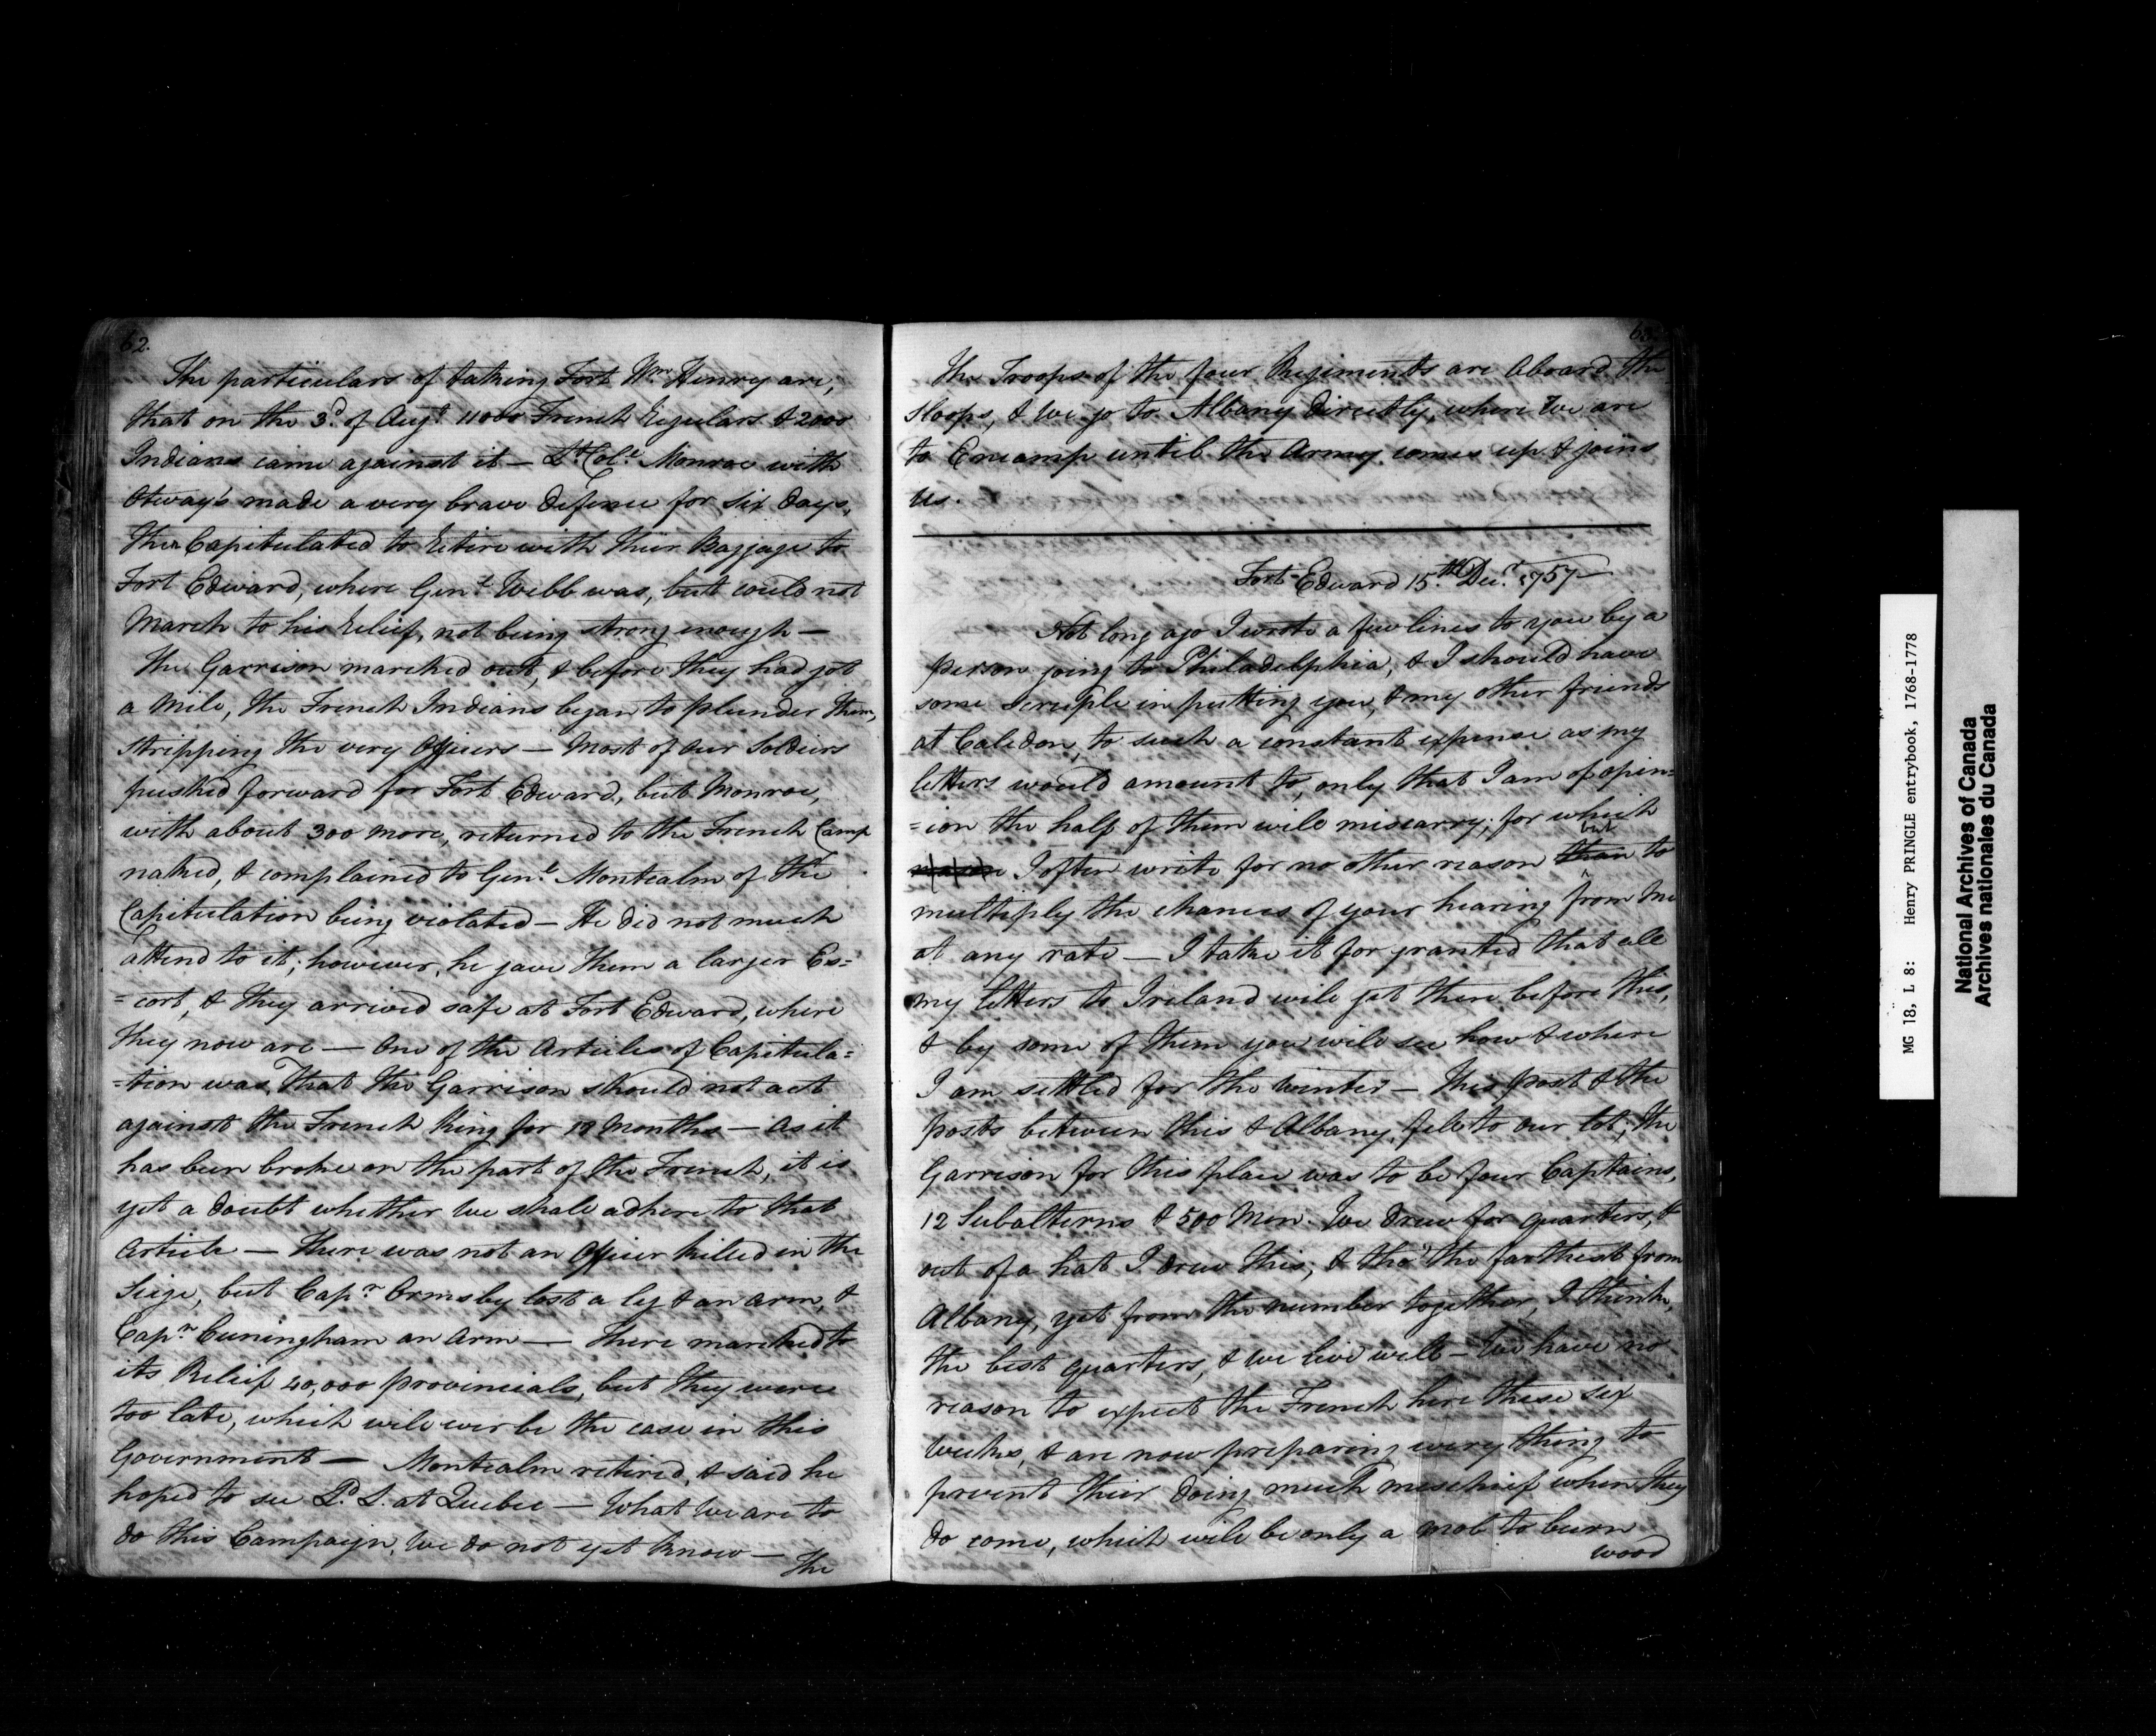 62.
The particulars of taking Fort Wm. Henry are,
that on the 3d. of Augt. 11000 French Regulars & 2000
Indians came against it — Lt. Coll. Monroe with
Otway's made a very brave Defence for six days,
then Capitulated to Retire with their Baggage to
Fort Edward, where Genl. Webb was, but could not
March to his Relief, not being strong enough —
The Garrison marched out, & before they had got
a Mile, the French Indians began to plunder them,
stripping the very Officers — Most of our Soldiers
pushed forward for Fort Edward, but Monroe,
with about 300 more, returned to the French Camp
naked, & complained to Genl. Montcalm of the
Capitulation being violated — He did not much
attend to it; however, he gave them a larger Es=
=cort, & they arrived safe at Fort Edward, where
they now are — One of the Articles of Capitula=
=tion was, that the Garrison should not act
against the French King for 18 Months — As it
has been broke on the part of the French, it is
yet a doubt whether we shall adhere to that
Article — There was not an Officer killed in the
Siege, but Capn. Ormsby lost a leg & an arm, &
Capn. Cuningham an Arm — There marched to
its Relief 40,000 provincials, but they were
too late, which will ever be the case in this
Government — Montcalm retired, & said he
hoped to see Ld. L. at Quebec — What we are to
do this Campaign, we do not yet know —
The
63.
The Troops of the four Regiments are Aboard the
Sloops, & we go to Albany directly, where we are
to Encamp until the Army comes up & joins
us.
Fort-Edward 15th. Decr. 1757 —
Not long ago I wrote a few lines to you by a
person going to Philadelphia, & I should have
some scruple in putting you, & my other friends
at Caledon, to such a constant expense as my
letters would amount to, only that I am of opin=
=ion the half of them will miscarry; for which
reason I often write for no other reason than but to
multiply the chances of your hearing from me
at any rate — I take it for granted that all
my letters to Ireland will get there before this,
& by some of them you will see how & where
I am settled for the winter — This post & the
posts between this & Albany, fell to our lot; the
Garrison for this place was to be four Captains,
12 Subalterns & 500 Men. We drew for quarters, &
out of a hat I drew this; & tho' the farthest from
Albany, yet from the number together, I think,
the best quarters, & we live well — We have no
reason to expect the French here these six
weeks, & are now preparing every thing to
prevent their doing much mischief when they
do come, which will be only a mob to burn
wood
MG 18, L 8: Henry PRINGLE entrybook, 1768-1778
National Archives of Canada
Archives nationales du Canada